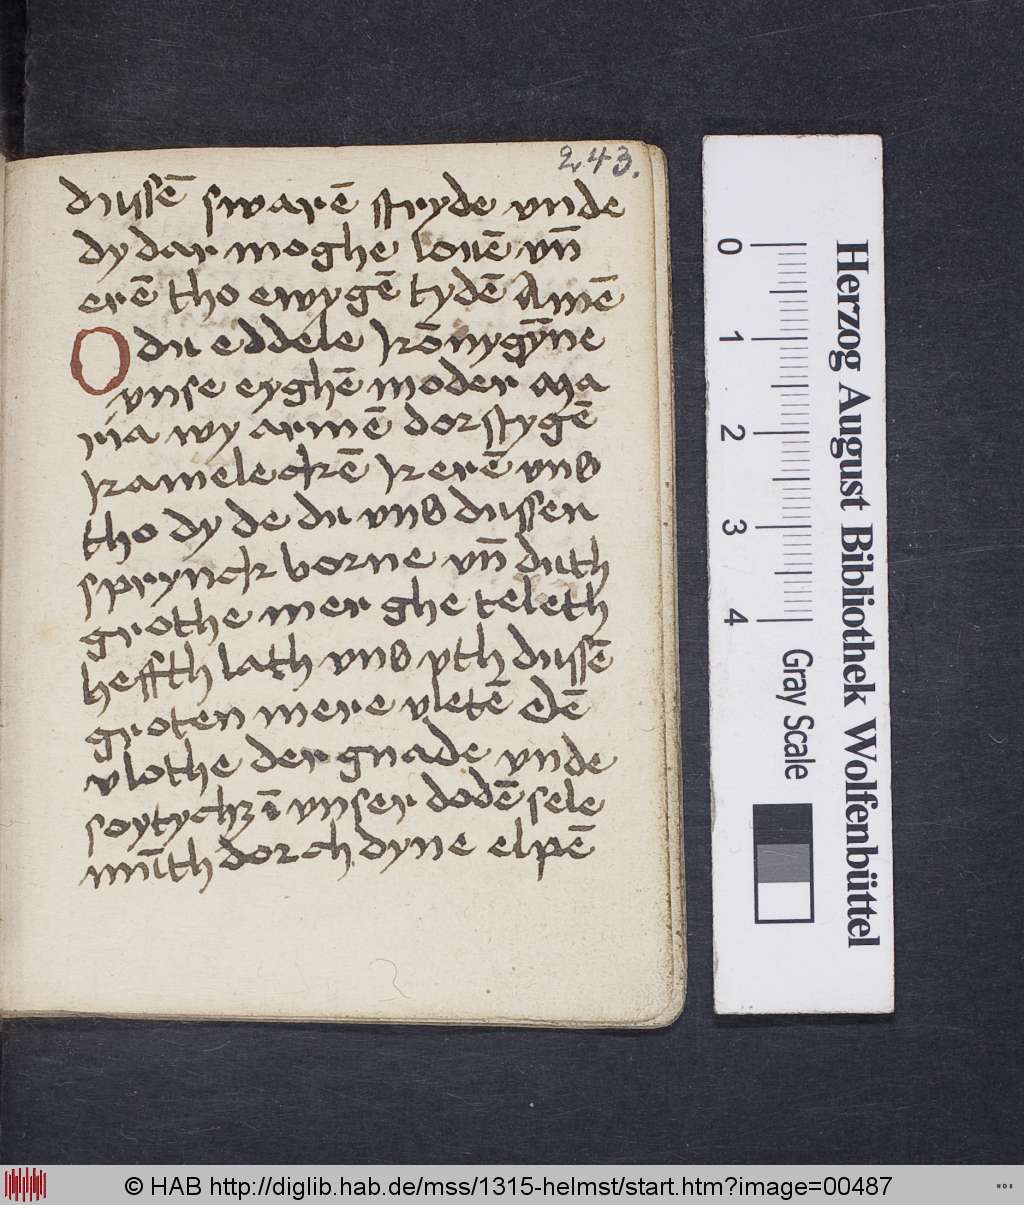 243.
dussē swarē stryde vnde
dy dar moghe louē vn̄
erē tho ewygē tydē Amē
O du eddele kōnygȳne
vnse eyghē moder Ma
ria wy armē dorstygē
kamelekē kerē vns
tho dy de du vns dussen
sprynck borne vn̄ duth
grothe mer ghe teleth
heffth lath vns vth dussē
groten mere vletē dē
vlothe der gnade vnde
vnser dodē sele
mīth dorch dyne elpē
0 1 2 3 4
Gray Scale
Herzog August Bibliothek Wolfenbüttel
© HAB http://diglib.hab.de/mss/1315-helmst/start.htm?image=00487